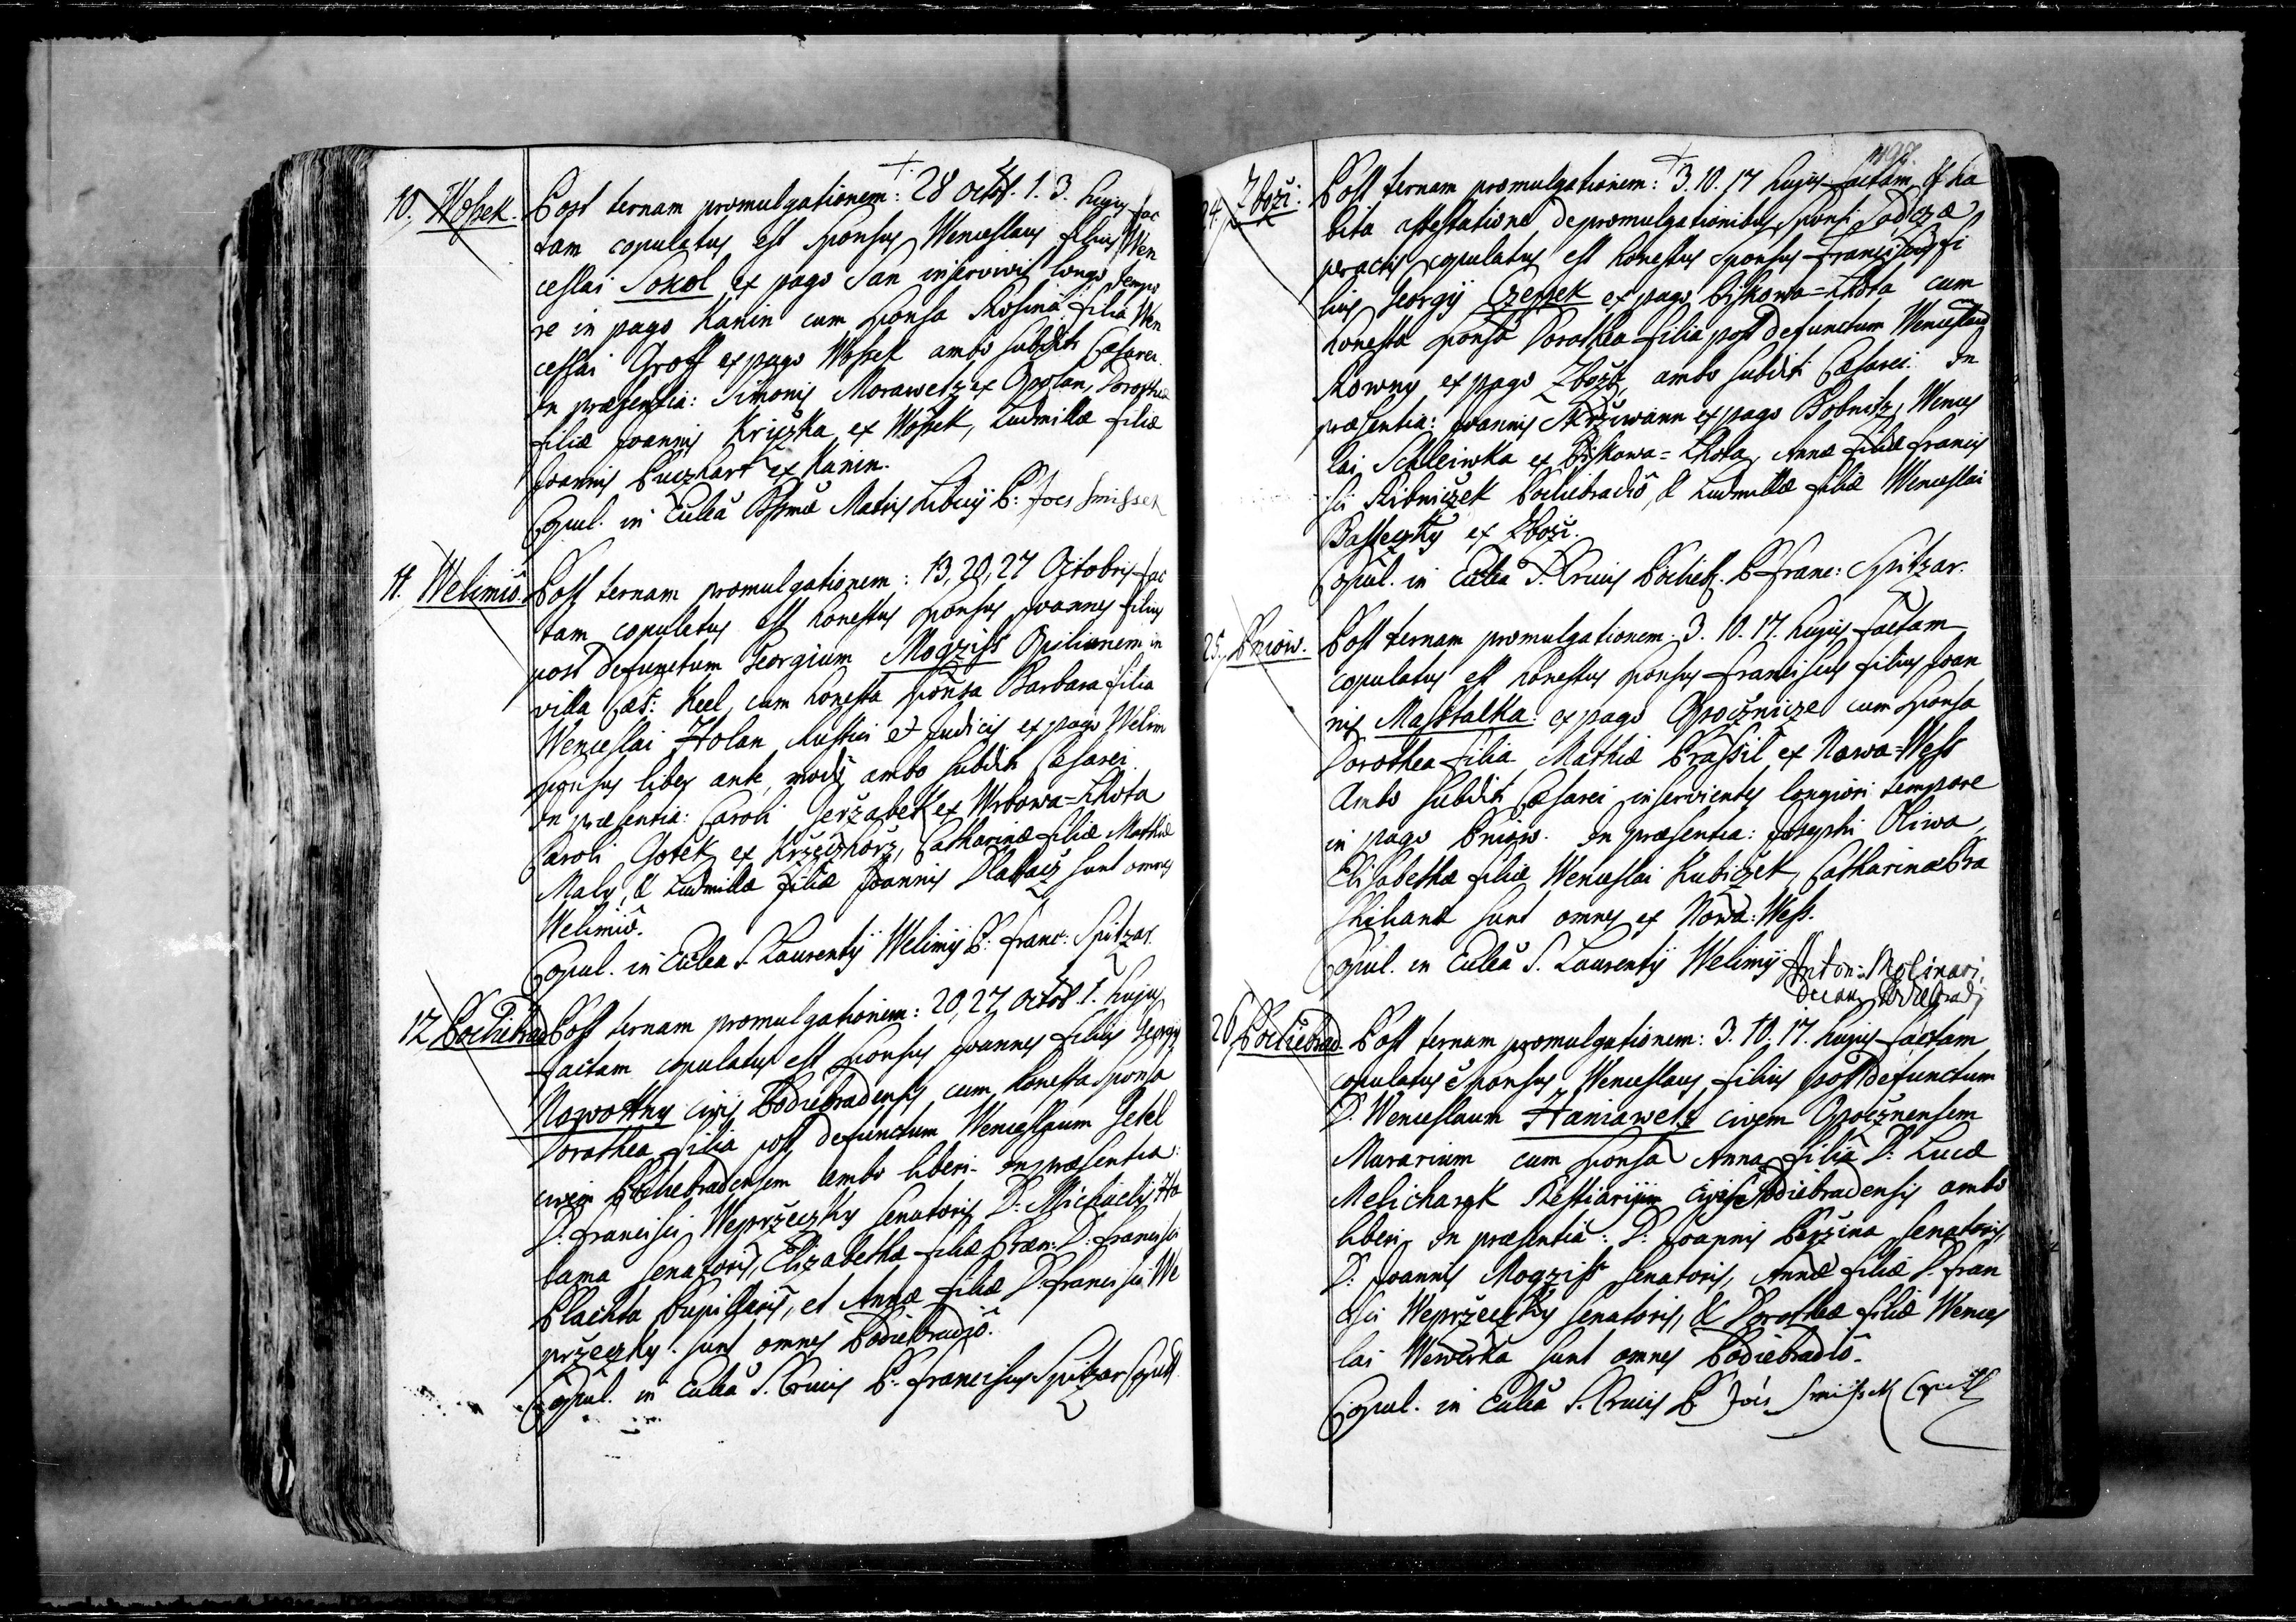 10. Wossek. Post ternam promulgationem: 28 Octob. 1. 3. hujus fac
tam copulatus est Sponsus Wenceslaus filius Wen
ceslai Sokol ex pago San inservivit longo tempo
re in pago Kanin cum Sponsa Rosina filia Wen
ceslai Groff ex pago Wossek ambo subditi Cæsarei.
In præsentia: Simonis Morawetz ex Opolan, Dorotheæ
filiæ Joannis Križka ex Wossek, Ludmillæ filiæ
Joannis Puczhart ex Kanin.
Copul. in Eccleā Bssmæ Matris Libicij P: Joes Smissek
11. Welimiō. Post ternam promulgationem: 13, 20, 27 Octobris fac
tam copulatus est honestus Sponsus Joannes filius
post defunctum Georgium Mogziss Opilionem in
villa Cæs: Keel, cum honesta Sponsa Barbara filia
Wenceslai Holan Rustici et Judicis ex pago Welim
Sponsus liber ante, modo ambo subditi Cæsarei.
In præsentia: Caroli Gerzabek ex Wrbowa=Lhota
Caroli Gotek ex Krzeczhorz, Catharinæ filiæ Mathiæ
Maly, & Ludmillæ filiæ Joannis Dlabacz sunt omnes
Welimiō.
Copul. in Eccleā S. Laurentij Welimij P: Franc: Spitzar.
12 Podiebrad Post ternam promulgationem: 20, 27 Octob. 1. hujus
factam copulatus est Sponsus Joannes filius Georgij
Nowottny civis Podiebradensis cum honesta Sponsa
Dorothea filia post defunctum Wenceslaum Jekel
civem Podiebradensem ambo liberi. In præsentia:
D: Francisci Weprzeczky Senatoris D: Michaelis Ha
lama Senatoris, Elizabethæ filiæ Præn: D: Francisci
Plachta Pupillaris, et Annæ filiæ D. Francisci We
przeczky. sunt omnes Podiebradiō.
Copul. in Eccleā S. Crucis P. Franciscus Spitzar Capell.
24. Zboži. Post ternam promulgationem: 3. 10. 17 hujus factam, et ha
bita attestatione de promulgationibus Sponsi Sadczæ
peractis copulatus est honestus Sponsus Franciscus fi
lius Georgij Czepek ex pago Piskowa=Lhota cum
honesta Sponsa Dorothea filia post defunctum Wenceslaum
Rowny ex pago Zboži, ambo subditi Cæsarei. In
præsentia: Joannis Skrziwann ex pago Bobnitz, Wences
lai Schleiwka ex Piskowa=Lhota, Annæ filiæ Francis
ci Ribniczek Podiebradiō, & Ludmillæ filiæ Wenceslai
Basteczky ex Zboži.
Copul. in Eccleā S. Crucis Podieb. P. Franc: Spitzar.
25. Pniow. Post ternam promulgationem: 3. 10. 17. hujus factam
copulatus est honestus Sponsus Franciscus filius Joan
nis Masstalka: ex pago Opocznicze cum Sponsa
Dorothea filia Mathiæ Prassil ex Nowa=Wess
Ambo subditi Cæsarei inservientes longiori tempore
in pago Pniow. In præsentia: Josephi Oliwa,
Elisabethæ filiæ Wenceslai Kubiczek, Catharinæ Bra
bihanæ sunt omnes ex Nowa=Wess.
Copul. in Eccleā S. Laurentij Welimij Anton: Molinari
Decanus Podiebradij
26 Podiebrad. Post ternam promulgationem: 3. 10. 17. hujus factam
copulatus ē Sponsus Wenceslaus filius post defunctum
D. Wenceslaum Haniawetz civem Opocznensem
Murarium cum Sponsa Anna filia D: Lucæ
Melicharek Restiarium civis Podiebradensis ambo
liberi. In præsentia: D: Joannis Perzina Senatoris,
D: Joannis Mogziss Senatoris, Annæ filiæ D. Fran
cisci Weprzeczky Senatoris, & Dorotheæ filiæ Wences
lai Wewerka sunt omnes Podiebradiō.
Copul. in Eccleā S. Crucis P. Jōes Smissek Capell